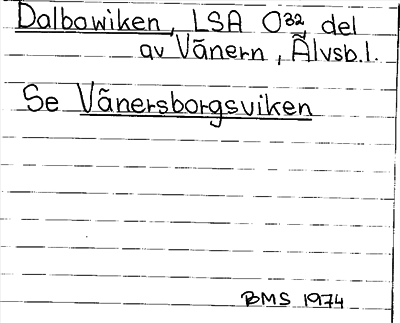 Dalbawiken, LSA O³² del
av Vänern, Älvsb.l.
Se Vänersborgsviken
BMS 1974